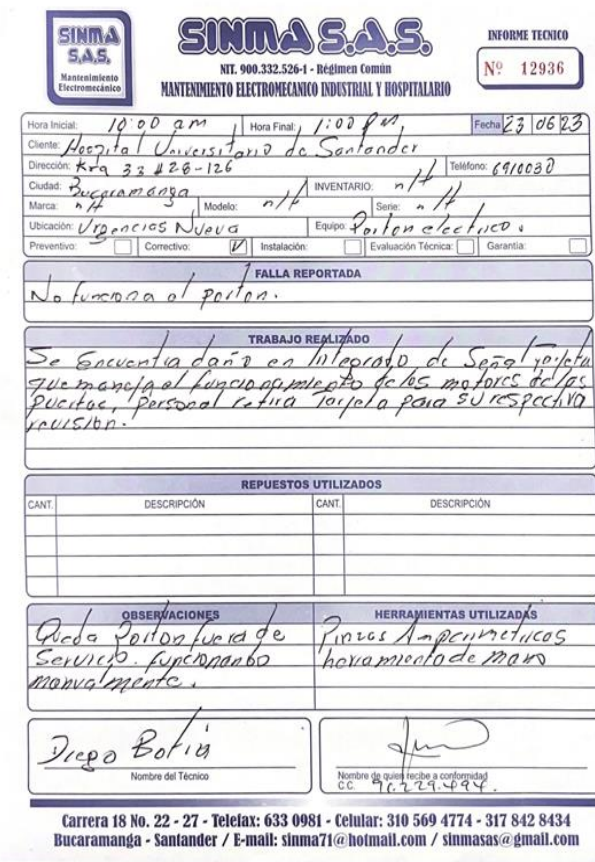 SINMA
S.A.S.
Mantenimiento
Electromecánico
SINMA S.A.S.
NIT. 900.332.526-1 - Régimen Común
MANTENIMIENTO ELECTROMECANICO INDUSTRIAL Y HOSPITALARIO
INFORME TECNICO
Nº 12936
Hora Inicial: 10:00 am Hora Final: 1:00 PM Fecha 23 06 23
Cliente: Hospital Universitario de Santander
Dirección: Kra 33 #28-126 Teléfono: 6910030
Ciudad: Bucaramanga INVENTARIO: n/t
Marca: n/t Modelo: n/t Serie: n/t
Ubicación: Urgencias Nueva Equipo: Porton electrico.
Preventivo: Correctivo: ✓ Instalación: Evaluación Técnica: Garantía:
FALLA REPORTADA
No funciona el porton.
TRABAJO REALIZADO
Se Encuentra daño en Integrado de Señal Tarjeta
que maneja el funcionamiento de los motores de las
puertas, personal retira Tarjeta para su respectiva
revisión.
REPUESTOS UTILIZADOS
CANT. DESCRIPCIÓN CANT. DESCRIPCIÓN
OBSERVACIONES
Queda Porton fuera de
Servicio. funcionando
manualmente.
HERRAMIENTAS UTILIZADAS
Pinzas Amperimetricas
herramienta de mano
Diego
Nombre del Técnico
Nombre de quien recibe a conformidad
C.C. 91.229.494.
Carrera 18 No. 22 - 27 - Telefax: 633 0981 - Celular: 310 569 4774 - 317 842 8434
Bucaramanga - Santander / E-mail: sinma71@hotmail.com / sinmasas@gmail.com